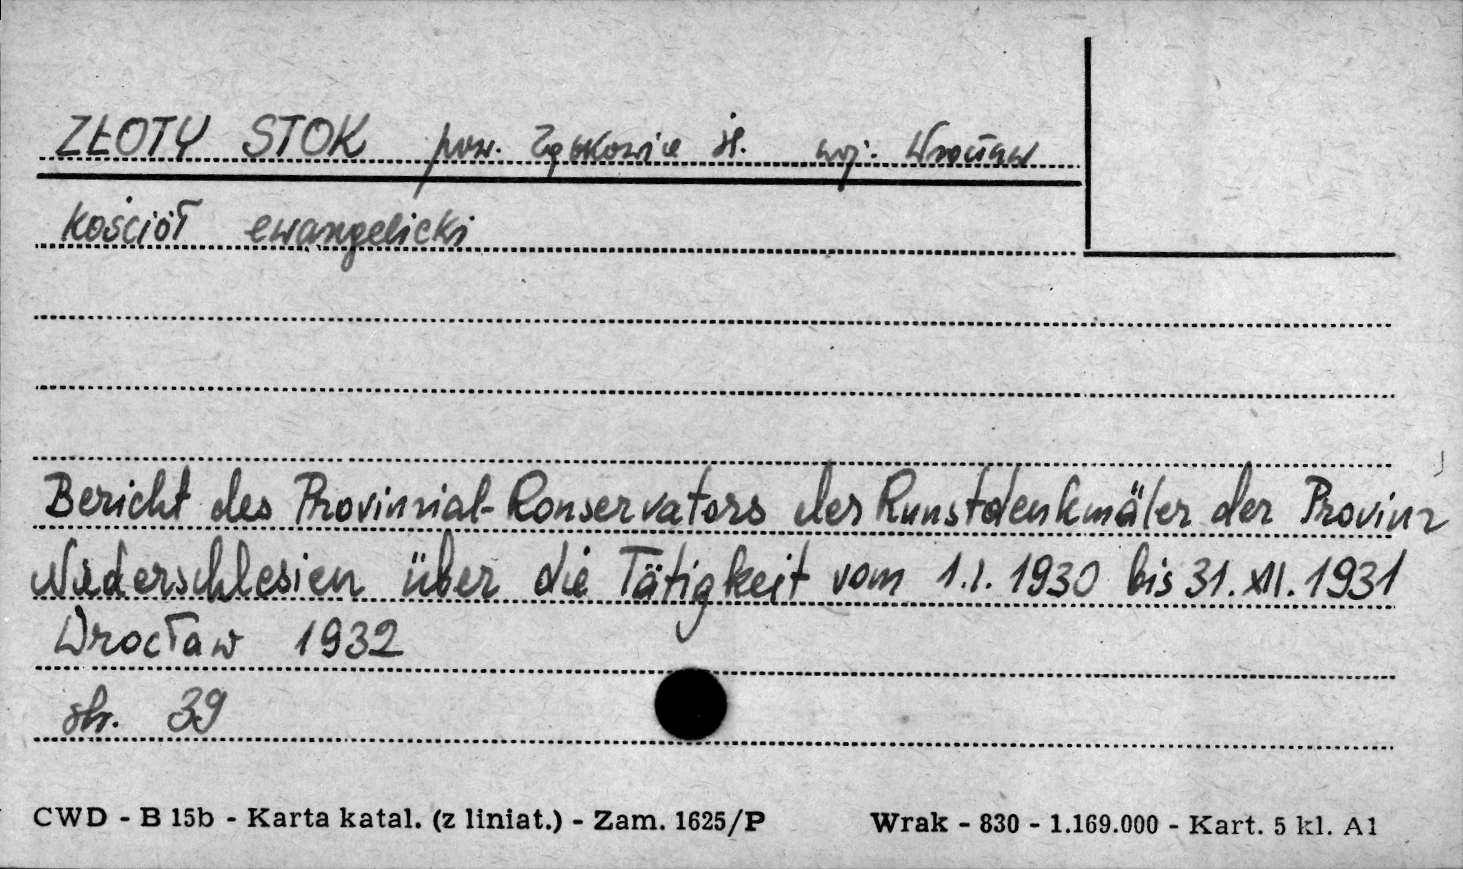 ZŁOTY STOK pow. Ząbkowice śl. woj. Wrocław
kościół ewangelicki
Bericht des Provinzial-Konservators der Kunstdenkmäler der Provinz
Niederschlesien über die Tätigkeit vom 1.I.1930 bis 31.XII.1931
Wrocław 1932
str. 39
CWD - B 15b - Karta katal. (z liniat.) - Zam. 1625/P Wrak - 830 - 1.169.000 - Kart. 5 kl. A1